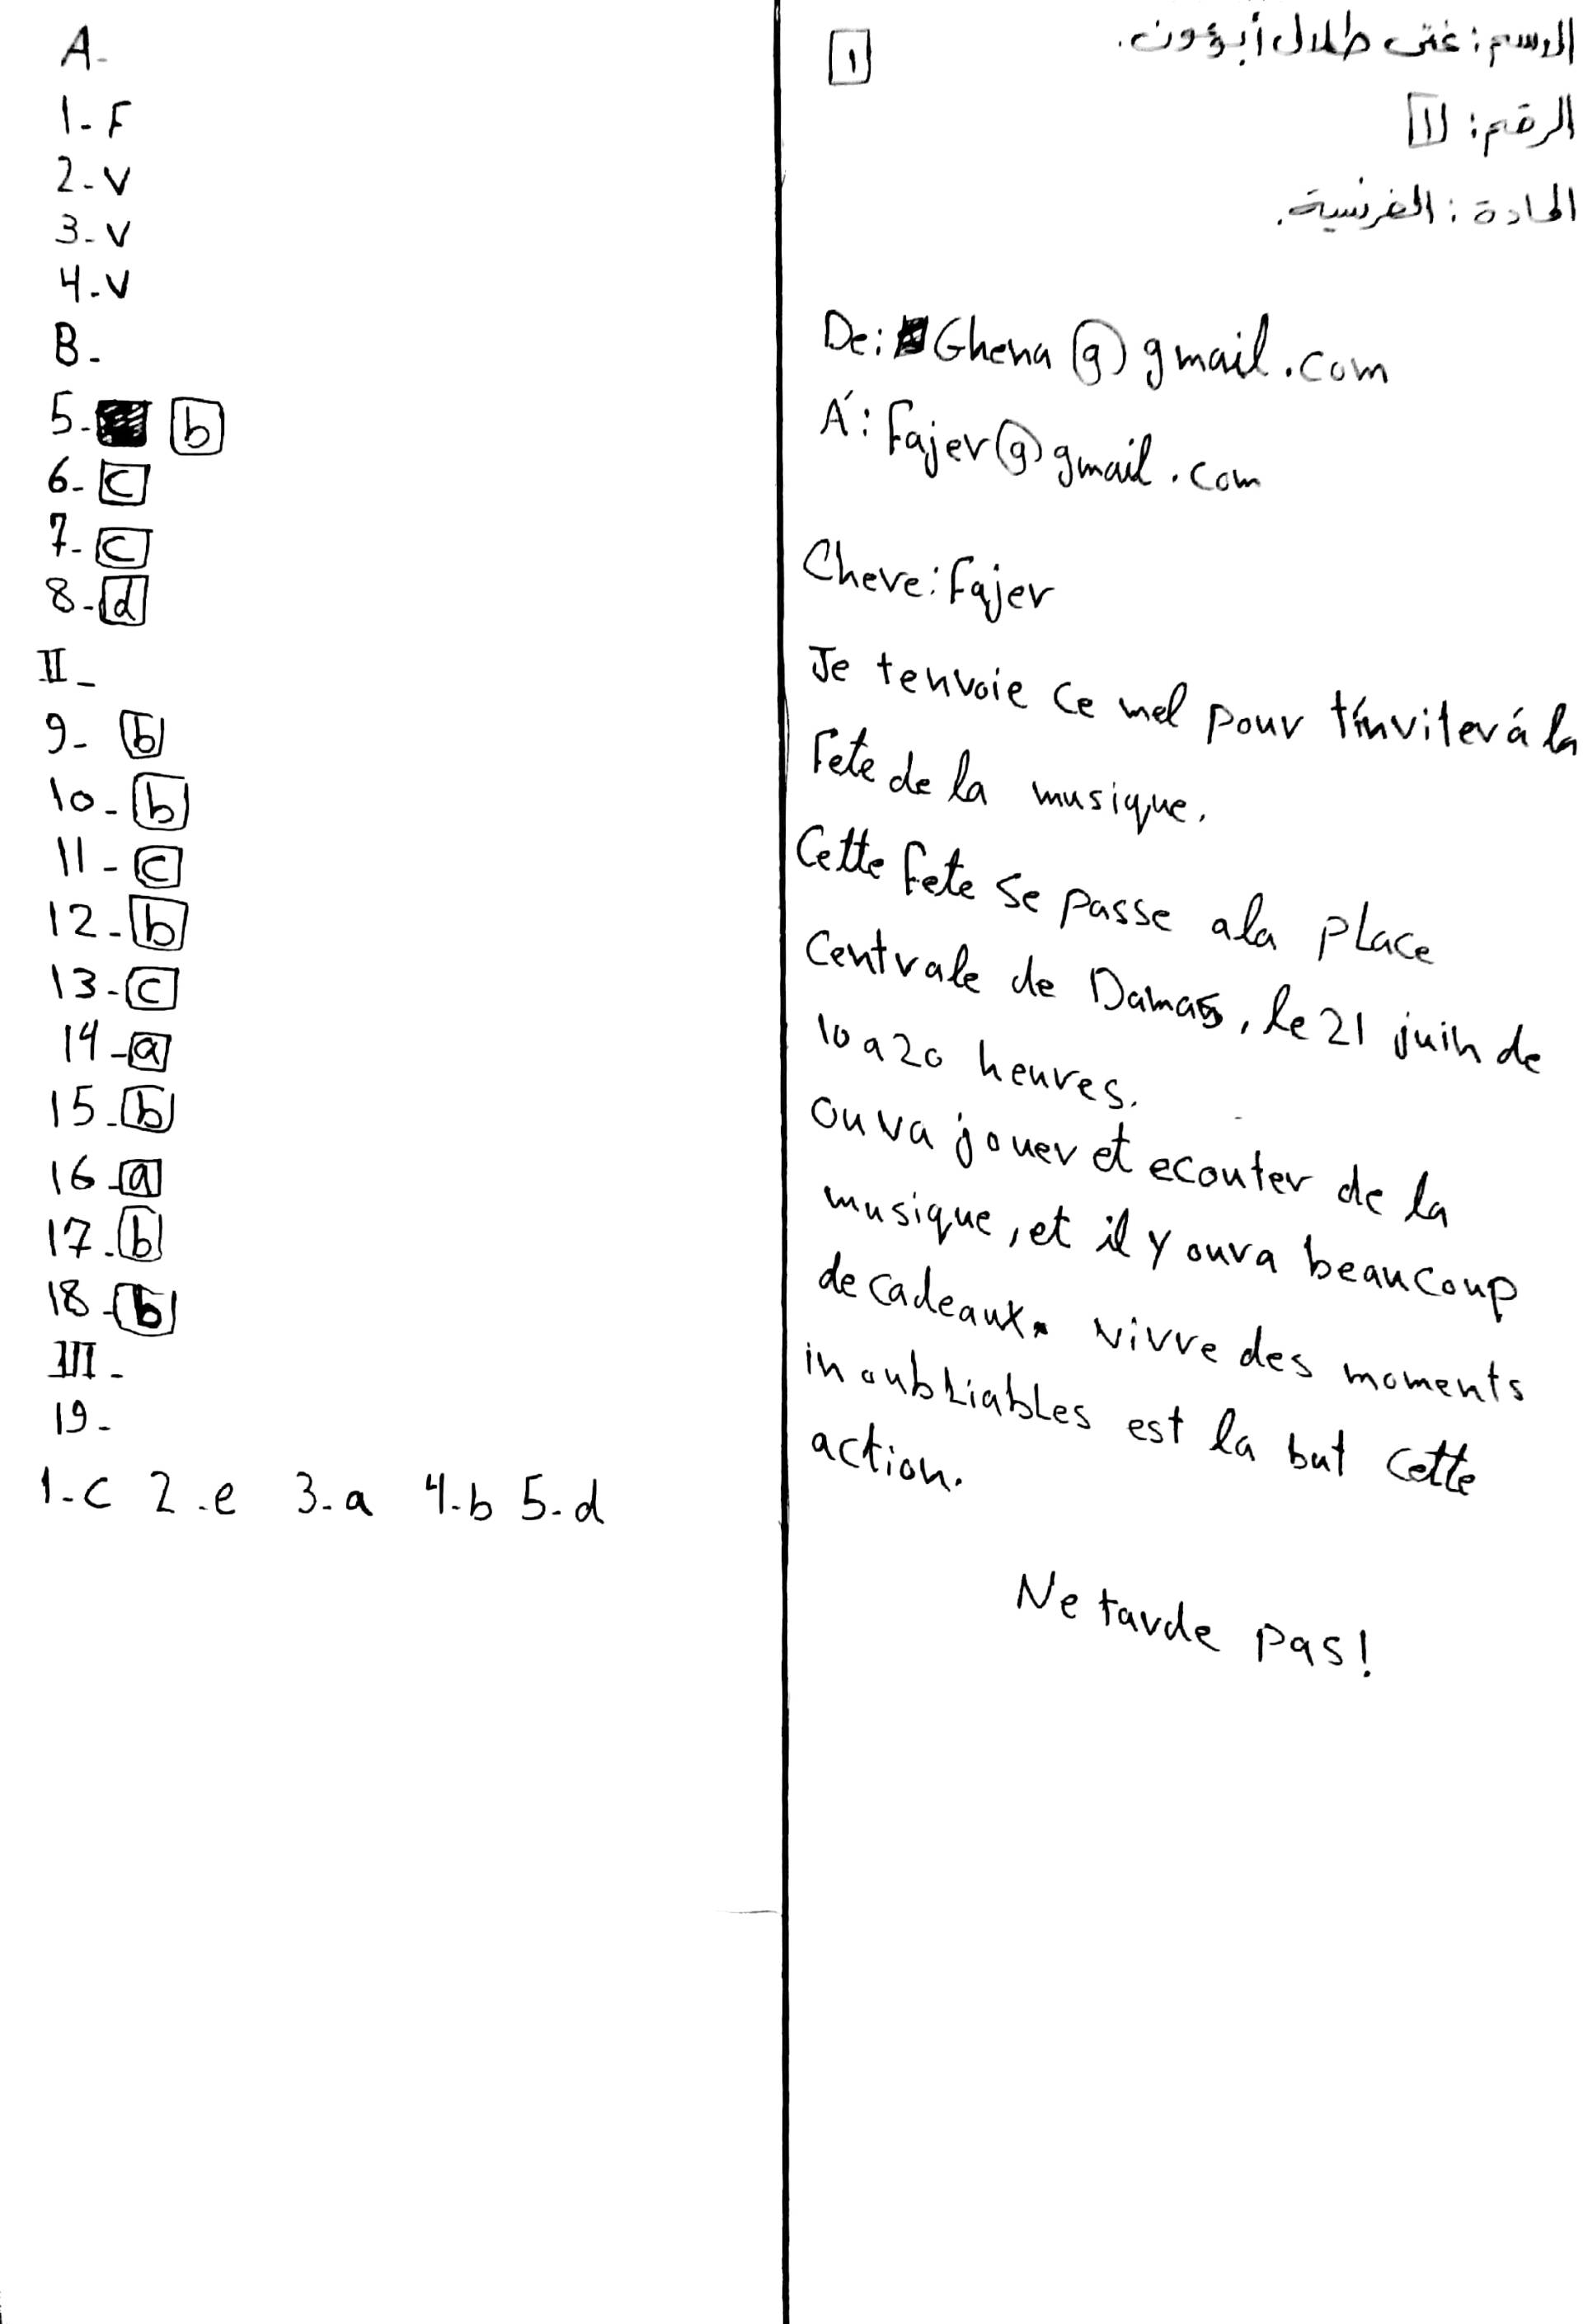 A-
1-F
2-V
3-V
4-V
B-
5- b
6- c
7- c
8- d
II-
9- b
10- b
11- c
12- b
13- c
14- a
15- b
16- a
17- b
18- b
III-
19-
1-c 2-e 3-a 4-b 5-d
1
الاسم: غنى طلال
الرقم: 1
المادة: الفرنسية.
De: Ghena@gmail.com
Á: Fajer@gmail.com
Chere: Fajer
Je tenvoie ce mel pour t'inviter á la
Fete de la musique.
Cette fete se passe a la place
Centrale de Damas, le 21 juin de
10 a 20 heures.
on va jouer et ecouter de la
musique, et il y aura beaucoup
de cadeaux. vivre des moments
inoubliables est la but cette
action.
Ne tarde pas!